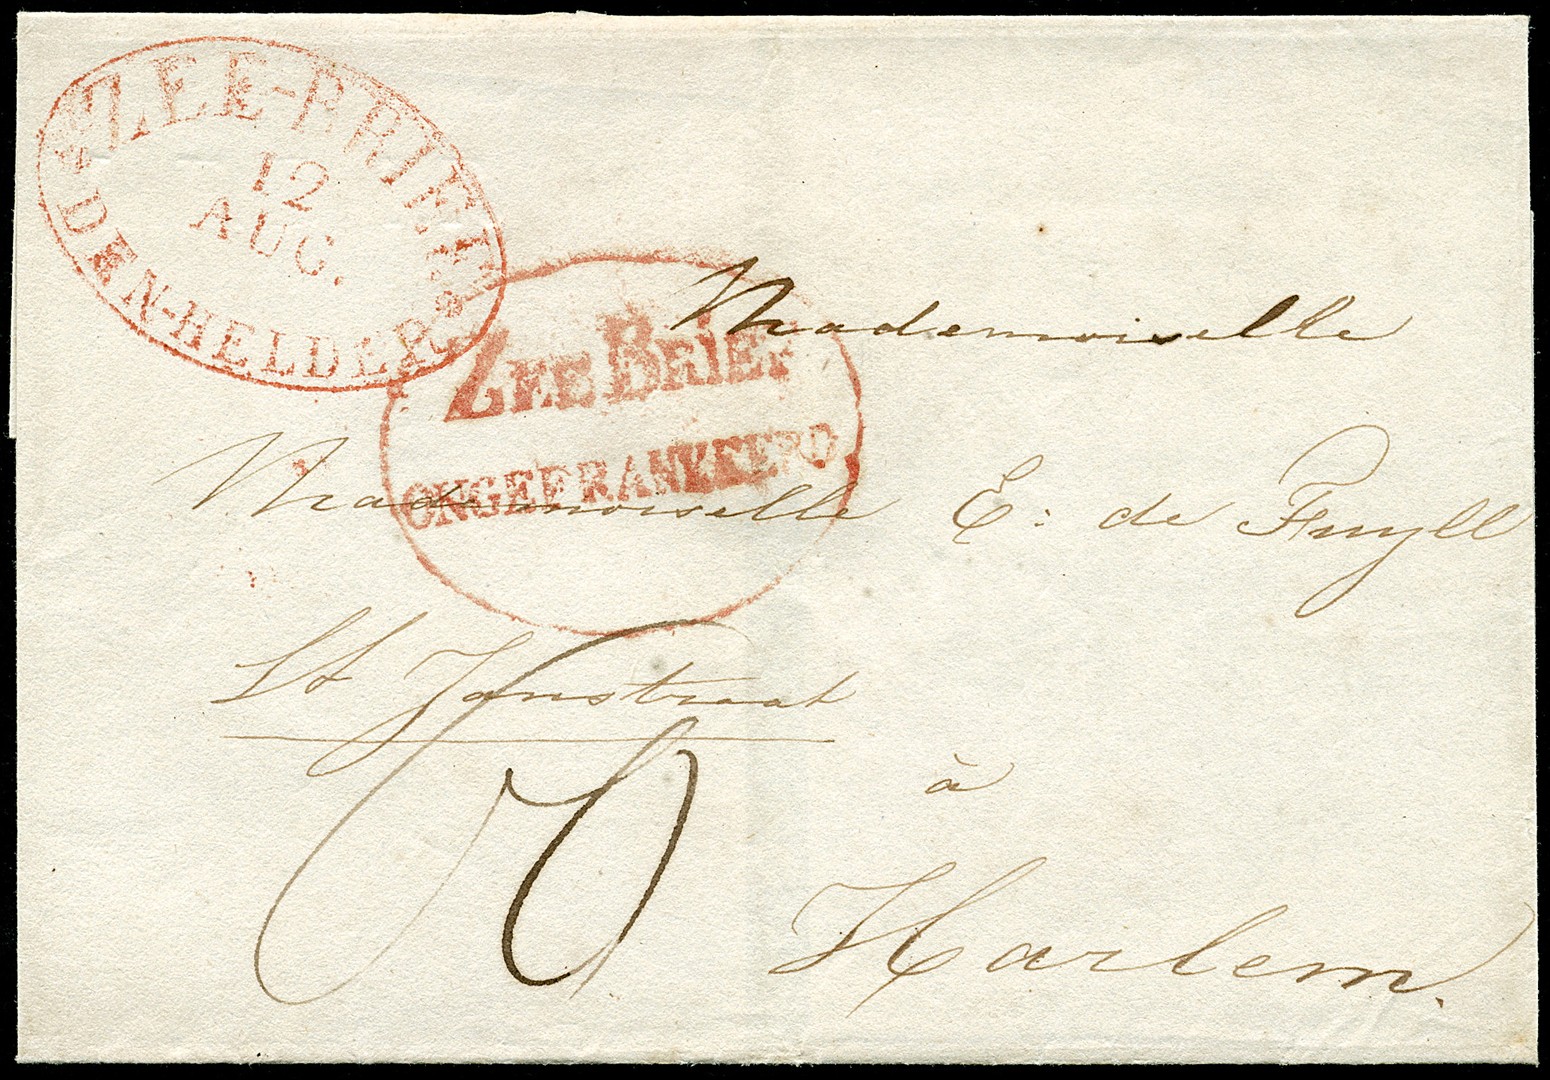 ZEE-BRIEF
12
AUG.
DEN-HELDER
ZEE BRIEF
ONGEFRANKEERD
Mademoiselle
Mademoiselle E: de Fruyll
St Janstraat
à
Harlem.